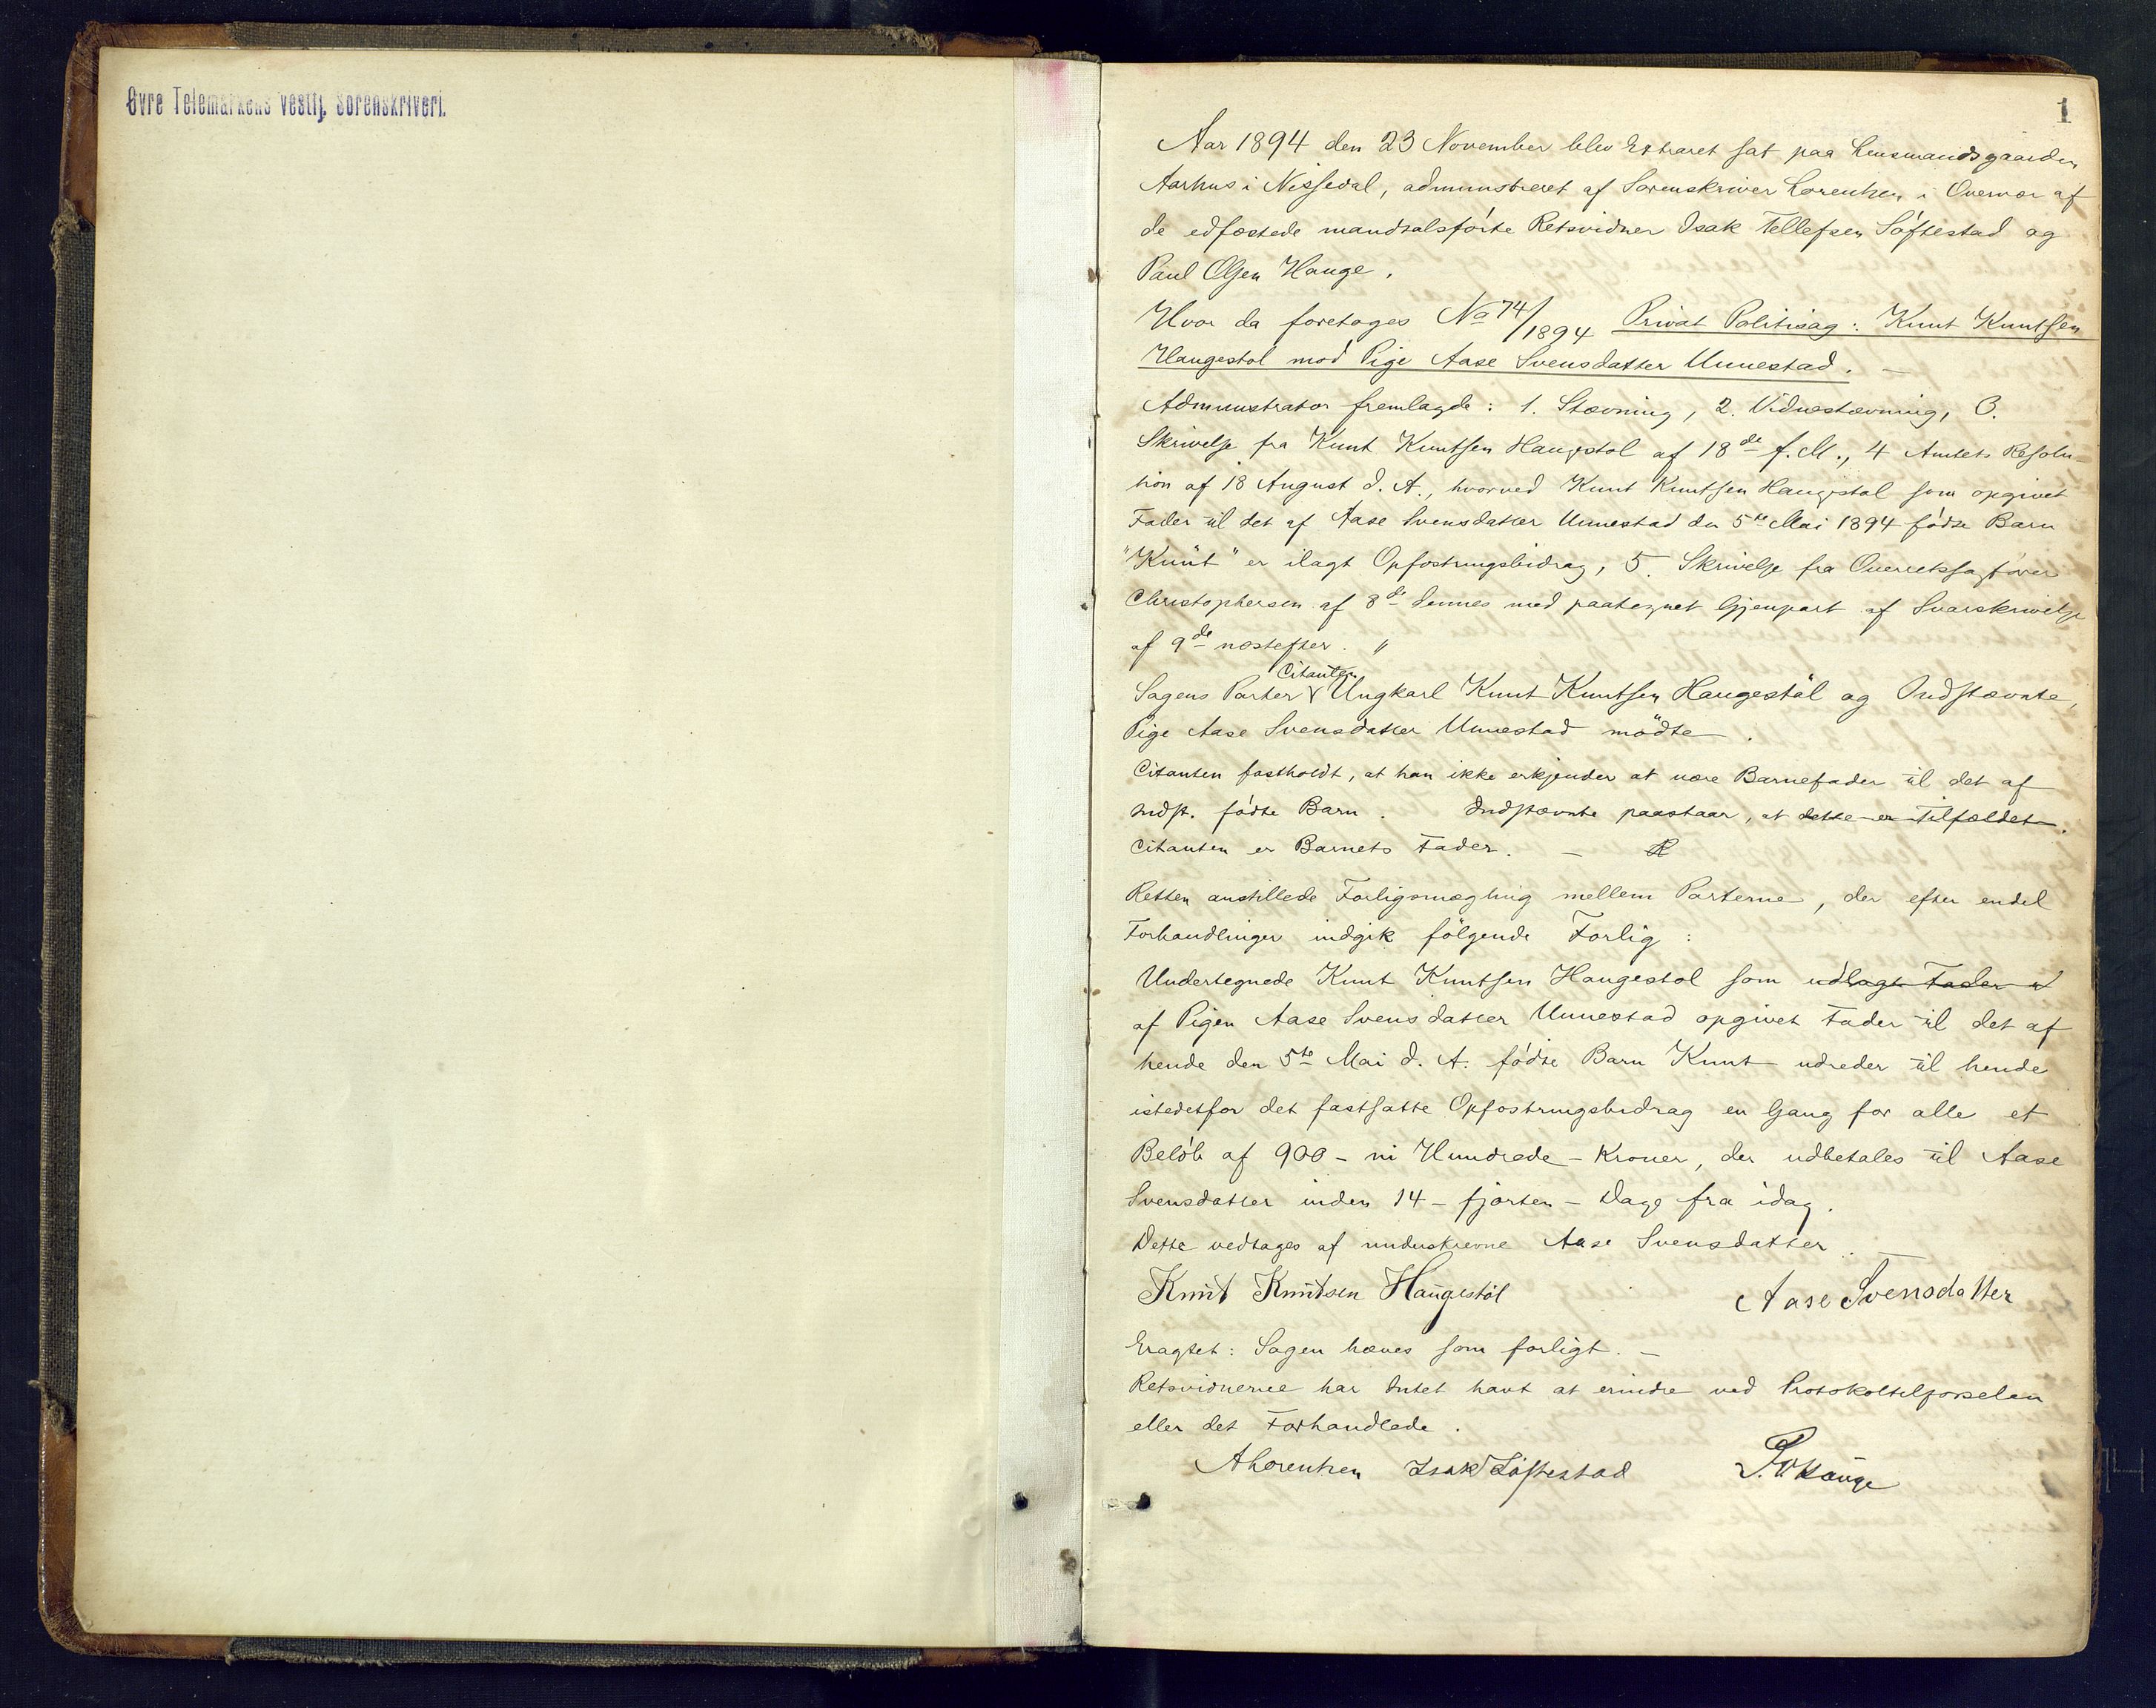 Øvre Telemarkens vestfj. Sorenskriveri.
1
Aar 1894 den 23 November blev Extraret sat paa Lensmandsgaarden
Aarhus i Nissedal, administreret af Sorenskriver Lorentzen i Overvær af
de edfæstede mandtalsførte Retsvidner Isak Tellefsen Løftestad og
Paul Olsen Hauge.
Hvor da foretoges No 74/1894 Privat Politisag: Knut Knutsen
Haugestøl mod Pige Aase Svensdatter Unnestad. —
Administrator fremlagde: 1. Stævning, 2. Vidnestævning, 3.
Skrivelse fra Knut Knutsen Haugestøl af 18de f. M., 4 Amtets Resolu-
tion af 18 August d. A., hvorved Knut Knutsen Haugestøl som opgivet
Fader til det af Aase Svensdatter Unnestad den 5te Mai 1894 fødte Barn
"Knut" er ilagt Opfostringsbidrag, 5. Skrivelse fra Overretssagfører
Christophersen af 8de dennes med paategnet Gjenpart af Svarskrivelse
af 9de næstefter. "
Sagens Parter Citanten Ungkarl Knut Knutsen Haugestøl og Indstævnte,
Pige Aase Svensdatter Unnestad mødte.
Citanten fastholdt, at han ikke erkjender at være Barnefader til det af
Indst. fødte Barn. Indstævnte paastaar, at dette er Tilfældet.
Citanten er Barnets Fader. — R
Retten anstillede Forligsmægling mellem Parterne, der efter endel
Forhandlinger indgik følgende Forlig:
Undertegnede Knut Knutsen Haugestøl som udlagt Fader
af Pigen Aase Svensdatter Unnestad opgivet Fader til det af
hende den 5te Mai d. A. fødte Barn Knut udreder til hende
istedetfor det fastsatte Opfostringsbidrag en Gang for alle et
Beløb af 900 - ni Hundrede - Kroner, der udbetales til Aase
Svensdatter inden 14 - fjorten - Dage fra idag.
Dette vedtages af underskrevne Aase Svensdatter. —
Knut Knutsen Haugestøl Aase Svensdatter
Eragtet: Sagen hæves som forligt. —
Retsvidnerne har Intet havt at erindre ved Protokoltilførselen
eller det Forhandlede.
ALorentzen Isak Løftestad P. O. Hauge